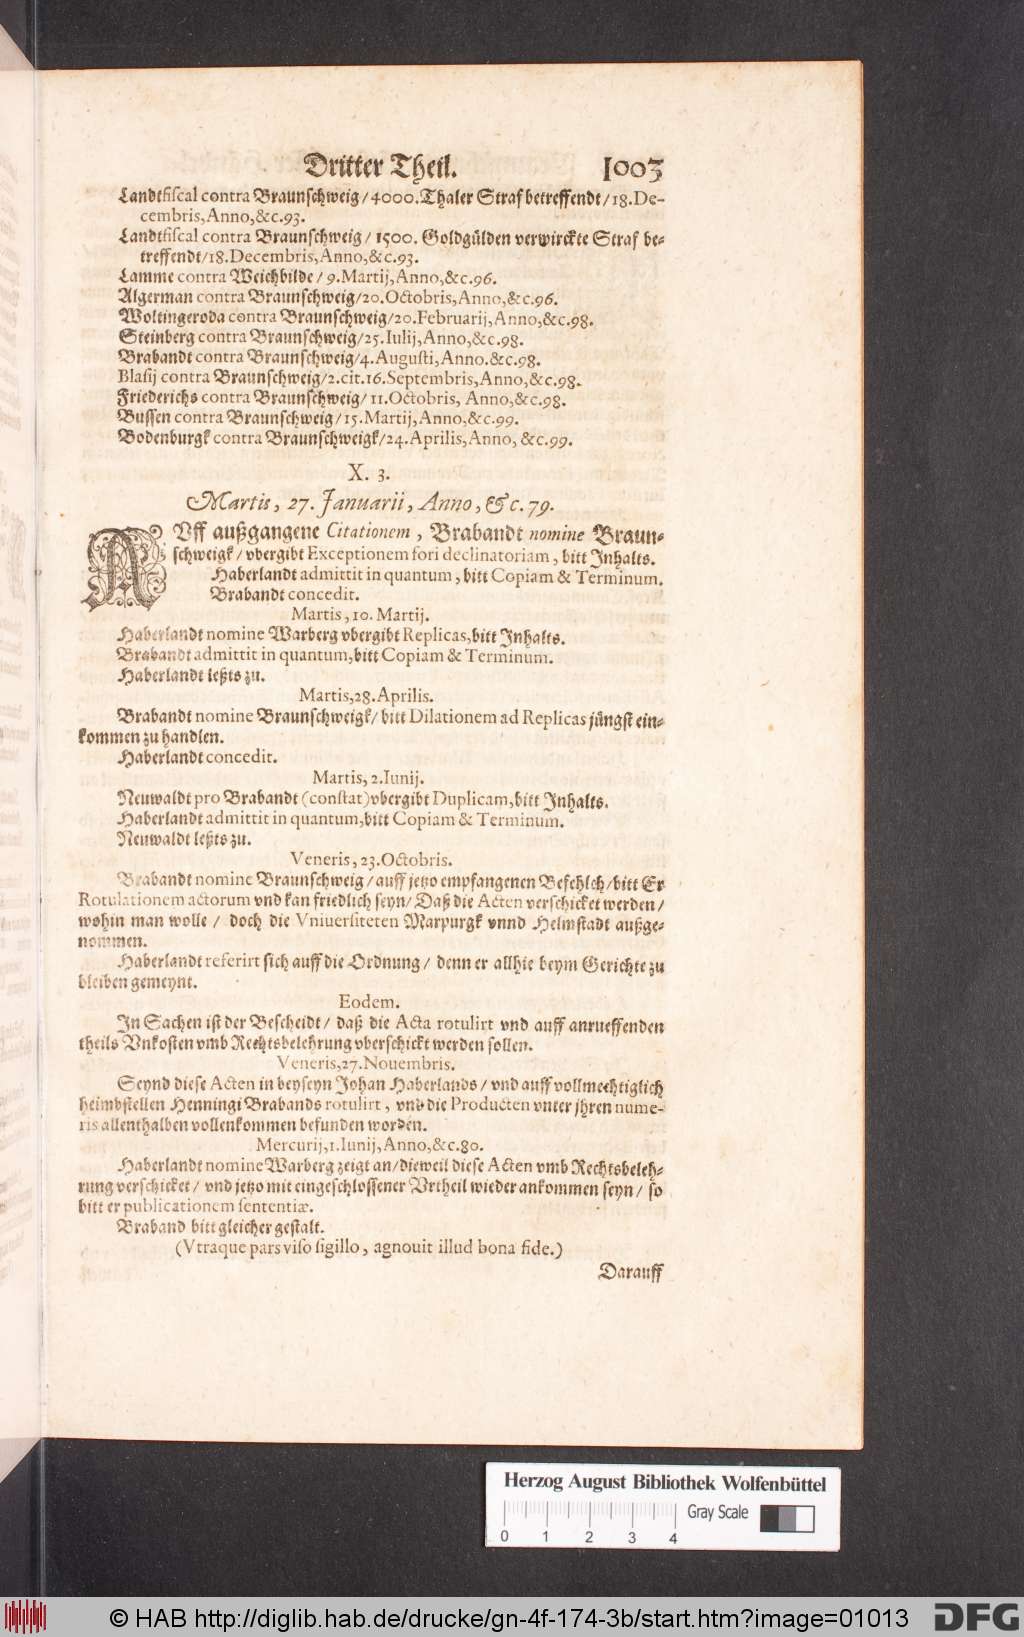 Dritter Theil. 1003
Landtfiscal contra Braunschweig/4000.Thaler Straf betreffendt/18.De-
cembris,Anno,&c.93.
Landtfiscal contra Braunschweig/ 1500. Goldgülden verwirckte Straf be-
treffendt/18.Decembris,Anno,&c.93.
Lamme contra Weichbilde/ 9.Martij,Anno,&c.96.
Algerman contra Braunschweig/20.Octobris,Anno,&c.96.
Woltingeroda contra Braunschweig/20.Februarij,Anno,&c.98.
Steinberg contra Braunschweig/25.Iulij,Anno,&c.98.
Brabandt contra Braunschweig/4.Augusti,Anno.&c.98.
Blasij contra Braunschweig/2.cit.16.Septembris,Anno,&c.98.
Friederichs contra Braunschweig/ 11.Octobris, Anno,&c.98.
Bussen contra Braunschweig/15.Martij,Anno,&c.99.
Bodenburgk contra Braunschweigk/24.Aprilis,Anno, &c.99.
X. 3.
Martis, 27. Januarii, Anno, &c. 79.
AUff außgangene Citationem, Brabandt nomine Braun-
schweigk/ vbergibt Exceptionem fori declinatoriam, bitt Inhalts.
Haberlandt admittit in quantum, bitt Copiam & Terminum.
Brabandt concedit.
Martis, 10. Martij.
Haberlandt nomine Warberg vbergibt Replicas,bitt Inhalts.
Brabandt admittit in quantum,bitt Copiam & Terminum.
Haberlandt leßts zu.
Martis,28.Aprilis.
Brabandt nomine Braunschweigk/ bitt Dilationem ad Replicas jüngst ein-
kommen zu handlen.
Haberlandt concedit.
Martis, 2.Iunij.
Neuwaldt pro Brabandt (constat)vbergibt Duplicam,bitt Inhalts.
Haberlandt admittit in quantum,bitt Copiam & Terminum.
Neuwaldt leßts zu.
Veneris, 23.Octobris.
Brabandt nomine Braunschweig/ auff jetzo empfangenen Befehlch/bitt Er
Rotulationem actorum vnd kan friedlich seyn/ Daß die Acten verschicket werden/
wohin man wolle/ doch die Vniuersiteten Marpurgk vnnd Helmstadt außge-
nommen.
Haberlandt referirt sich auff die Ordnung/ denn er allhie beym Gerichte zu
bleiben gemeynt.
Eodem.
In Sachen ist der Bescheidt/ daß die Acta rotulirt vnd auff anrueffenden
theils Vnkosten vmb Rechtsbelehrung vberschickt werden sollen.
Veneris,27.Nouembris.
Seynd diese Acten in beyseyn Johan Haberlands/ vnd auff vollmechtiglich
heimbstellen Henningi Brabands rotulirt, vnd die Producten vnter jhren nume-
ris allenthalben vollenkommen befunden worden.
Mercurij,1.Iunij,Anno,&c.80.
Haberlandt nomine Warberg zeigt an/dieweil diese Acten vmb Rechtsbeleh-
rung verschicket/ vnd jetzo mit eingeschlossener Vrtheil wieder ankommen seyn/ so
bitt er publicationem sententiæ.
Braband bitt gleicher gestalt.
(Vtraque pars viso sigillo, agnouit illud bona fide.)
Darauff
Herzog August Bibliothek Wolfenbüttel
Gray Scale
0 1 2 3 4
© HAB http://diglib.hab.de/drucke/gn-4f-174-3b/start.htm?image=01013
DFG